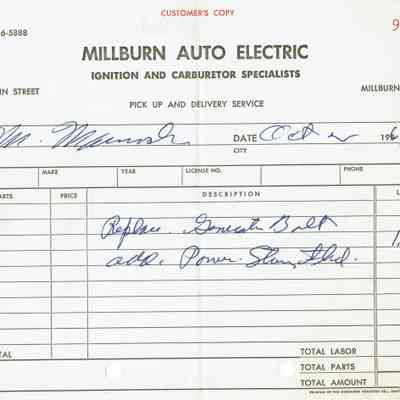 CUSTOMER'S COPY
6-5388
9
MILLBURN AUTO ELECTRIC
IGNITION AND CARBURETOR SPECIALISTS
IN STREET
MILLBUR
PICK UP AND DELIVERY SERVICE
M. DATE Oct 196
CITY
MAKE YEAR LICENSE NO. PHONE
ARTS PRICE DESCRIPTION L
Replace Generator Belt
1
add. Power. Steer. Fluid.
TAL TOTAL LABOR
TOTAL PARTS
TOTAL AMOUNT